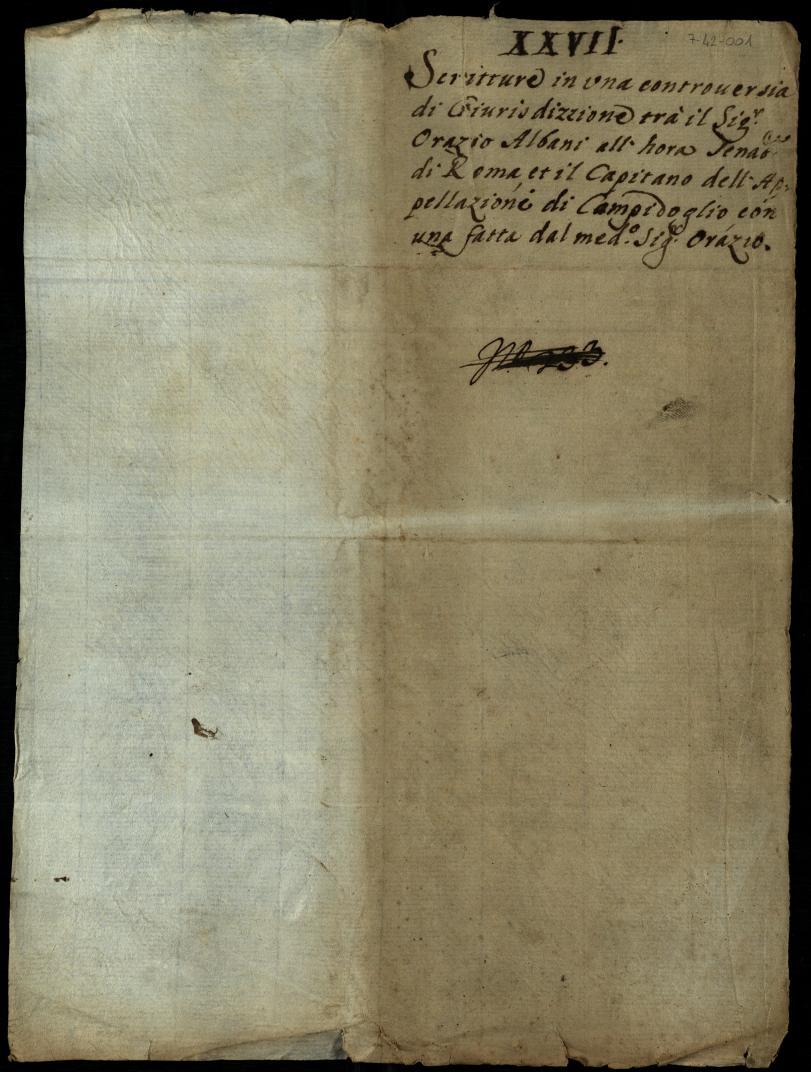 XXVII.
7-42-001
Scritture in una controuersia
di Giurisdizzione trà il Sig.r
Orazio Albani all' hora Senat.re
di Roma, et il Capitano dell' Ap-
pellazioni di Campidoglio con
una fatta dal med.o Sig.r Orazio.